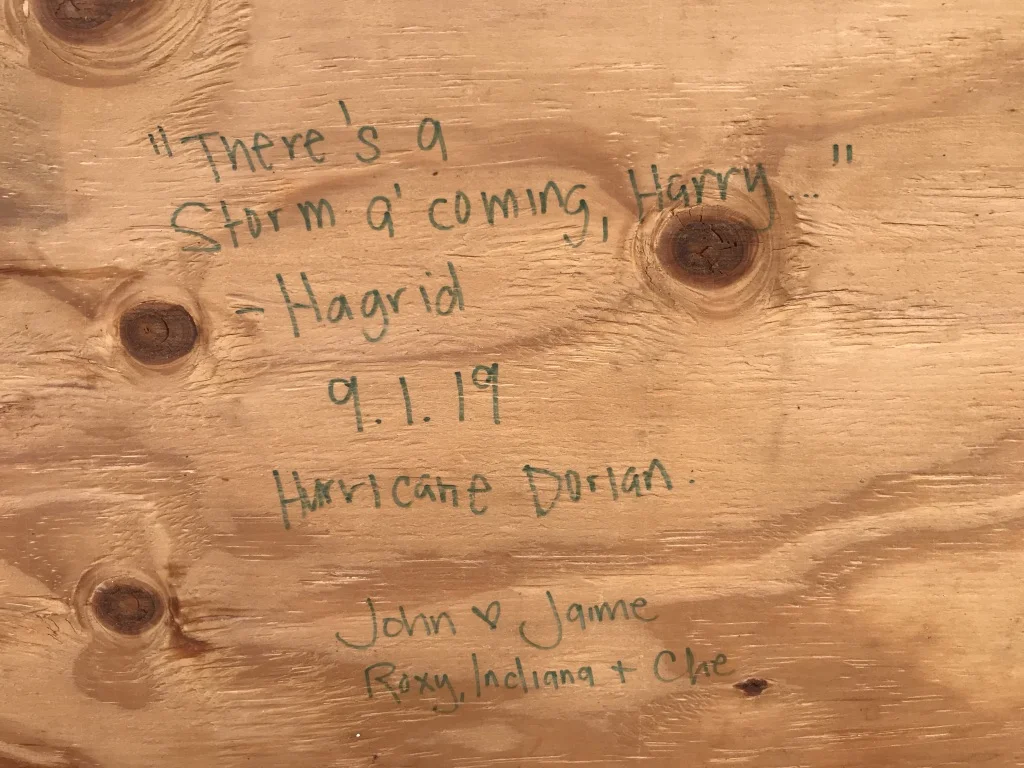 "There's a
Storm a' coming, Harry..."
- Hagrid
9.1.19
Hurricane Dorian.
John ♥ Jaime
Roxy, Indiana + Che